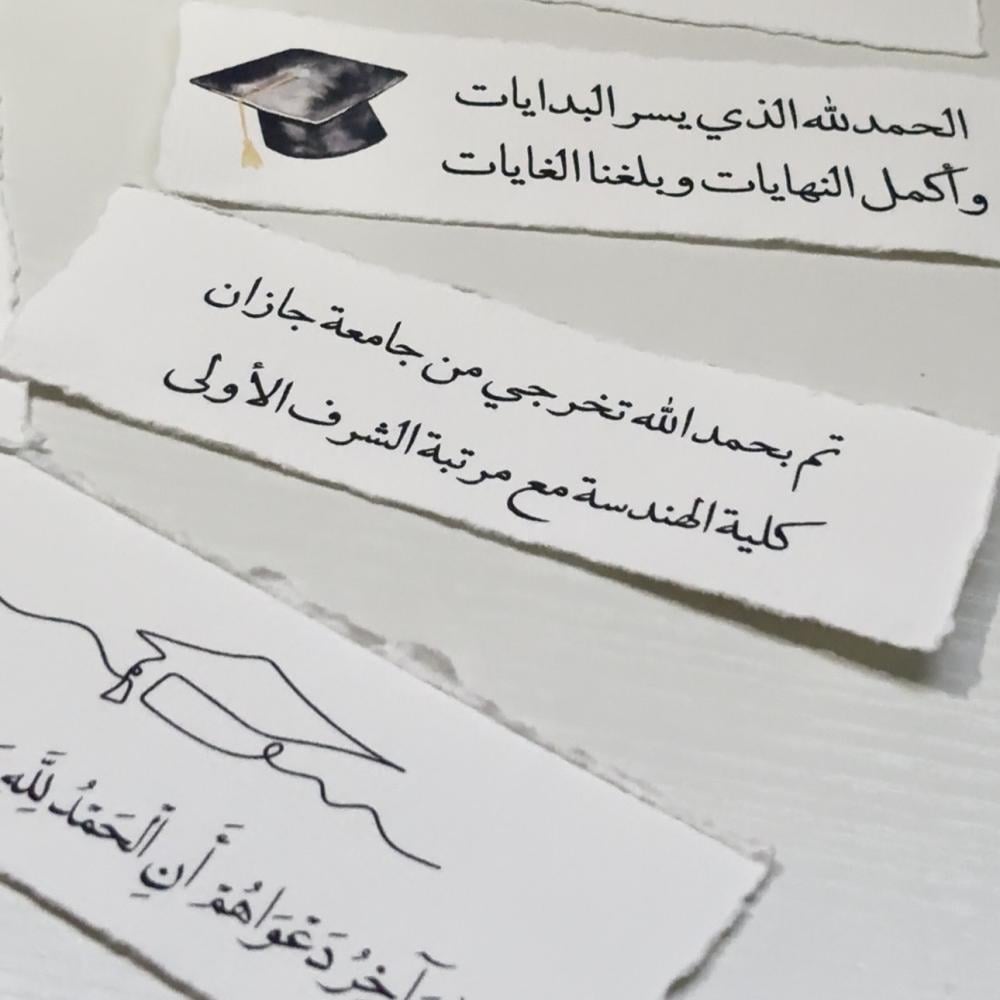 الحمدلله الذي يسر البدايات
وأكمل النهايات وبلغنا الغايات
تم بحمد الله تخرجي من جامعة جازان
كلية الهندسة مع مرتبة الشرف الأولى
وَآخِرُ دَعْوَاهُمْ أَنِ الْحَمْدُ لِلَّهِ